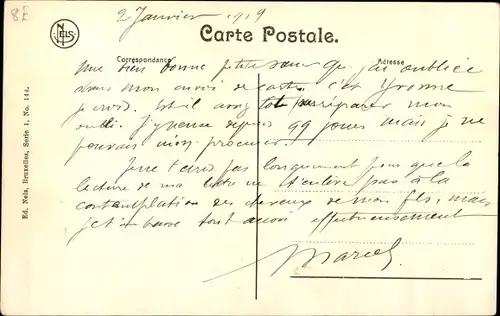 8E
2 Janvier 1919
NELS
Carte Postale.
Correspondance
Adresse
Une bien bonne petite sœur que j'ai oubliée
dans mon envoi de cartes c'est Yvonne
je crois. tôt réparer mon
oubli. depuis 99 jours mais je ne
pouvais m'en procurer.
pas longuement pour que la
lecture de ma lettre ne pas à la
contemplation des cheveux de mon fils, mais
je t'embrasse tout aussi affectueusement
Marcel
Ed. Nels, Bruxelles, Serie 1, No. 144.